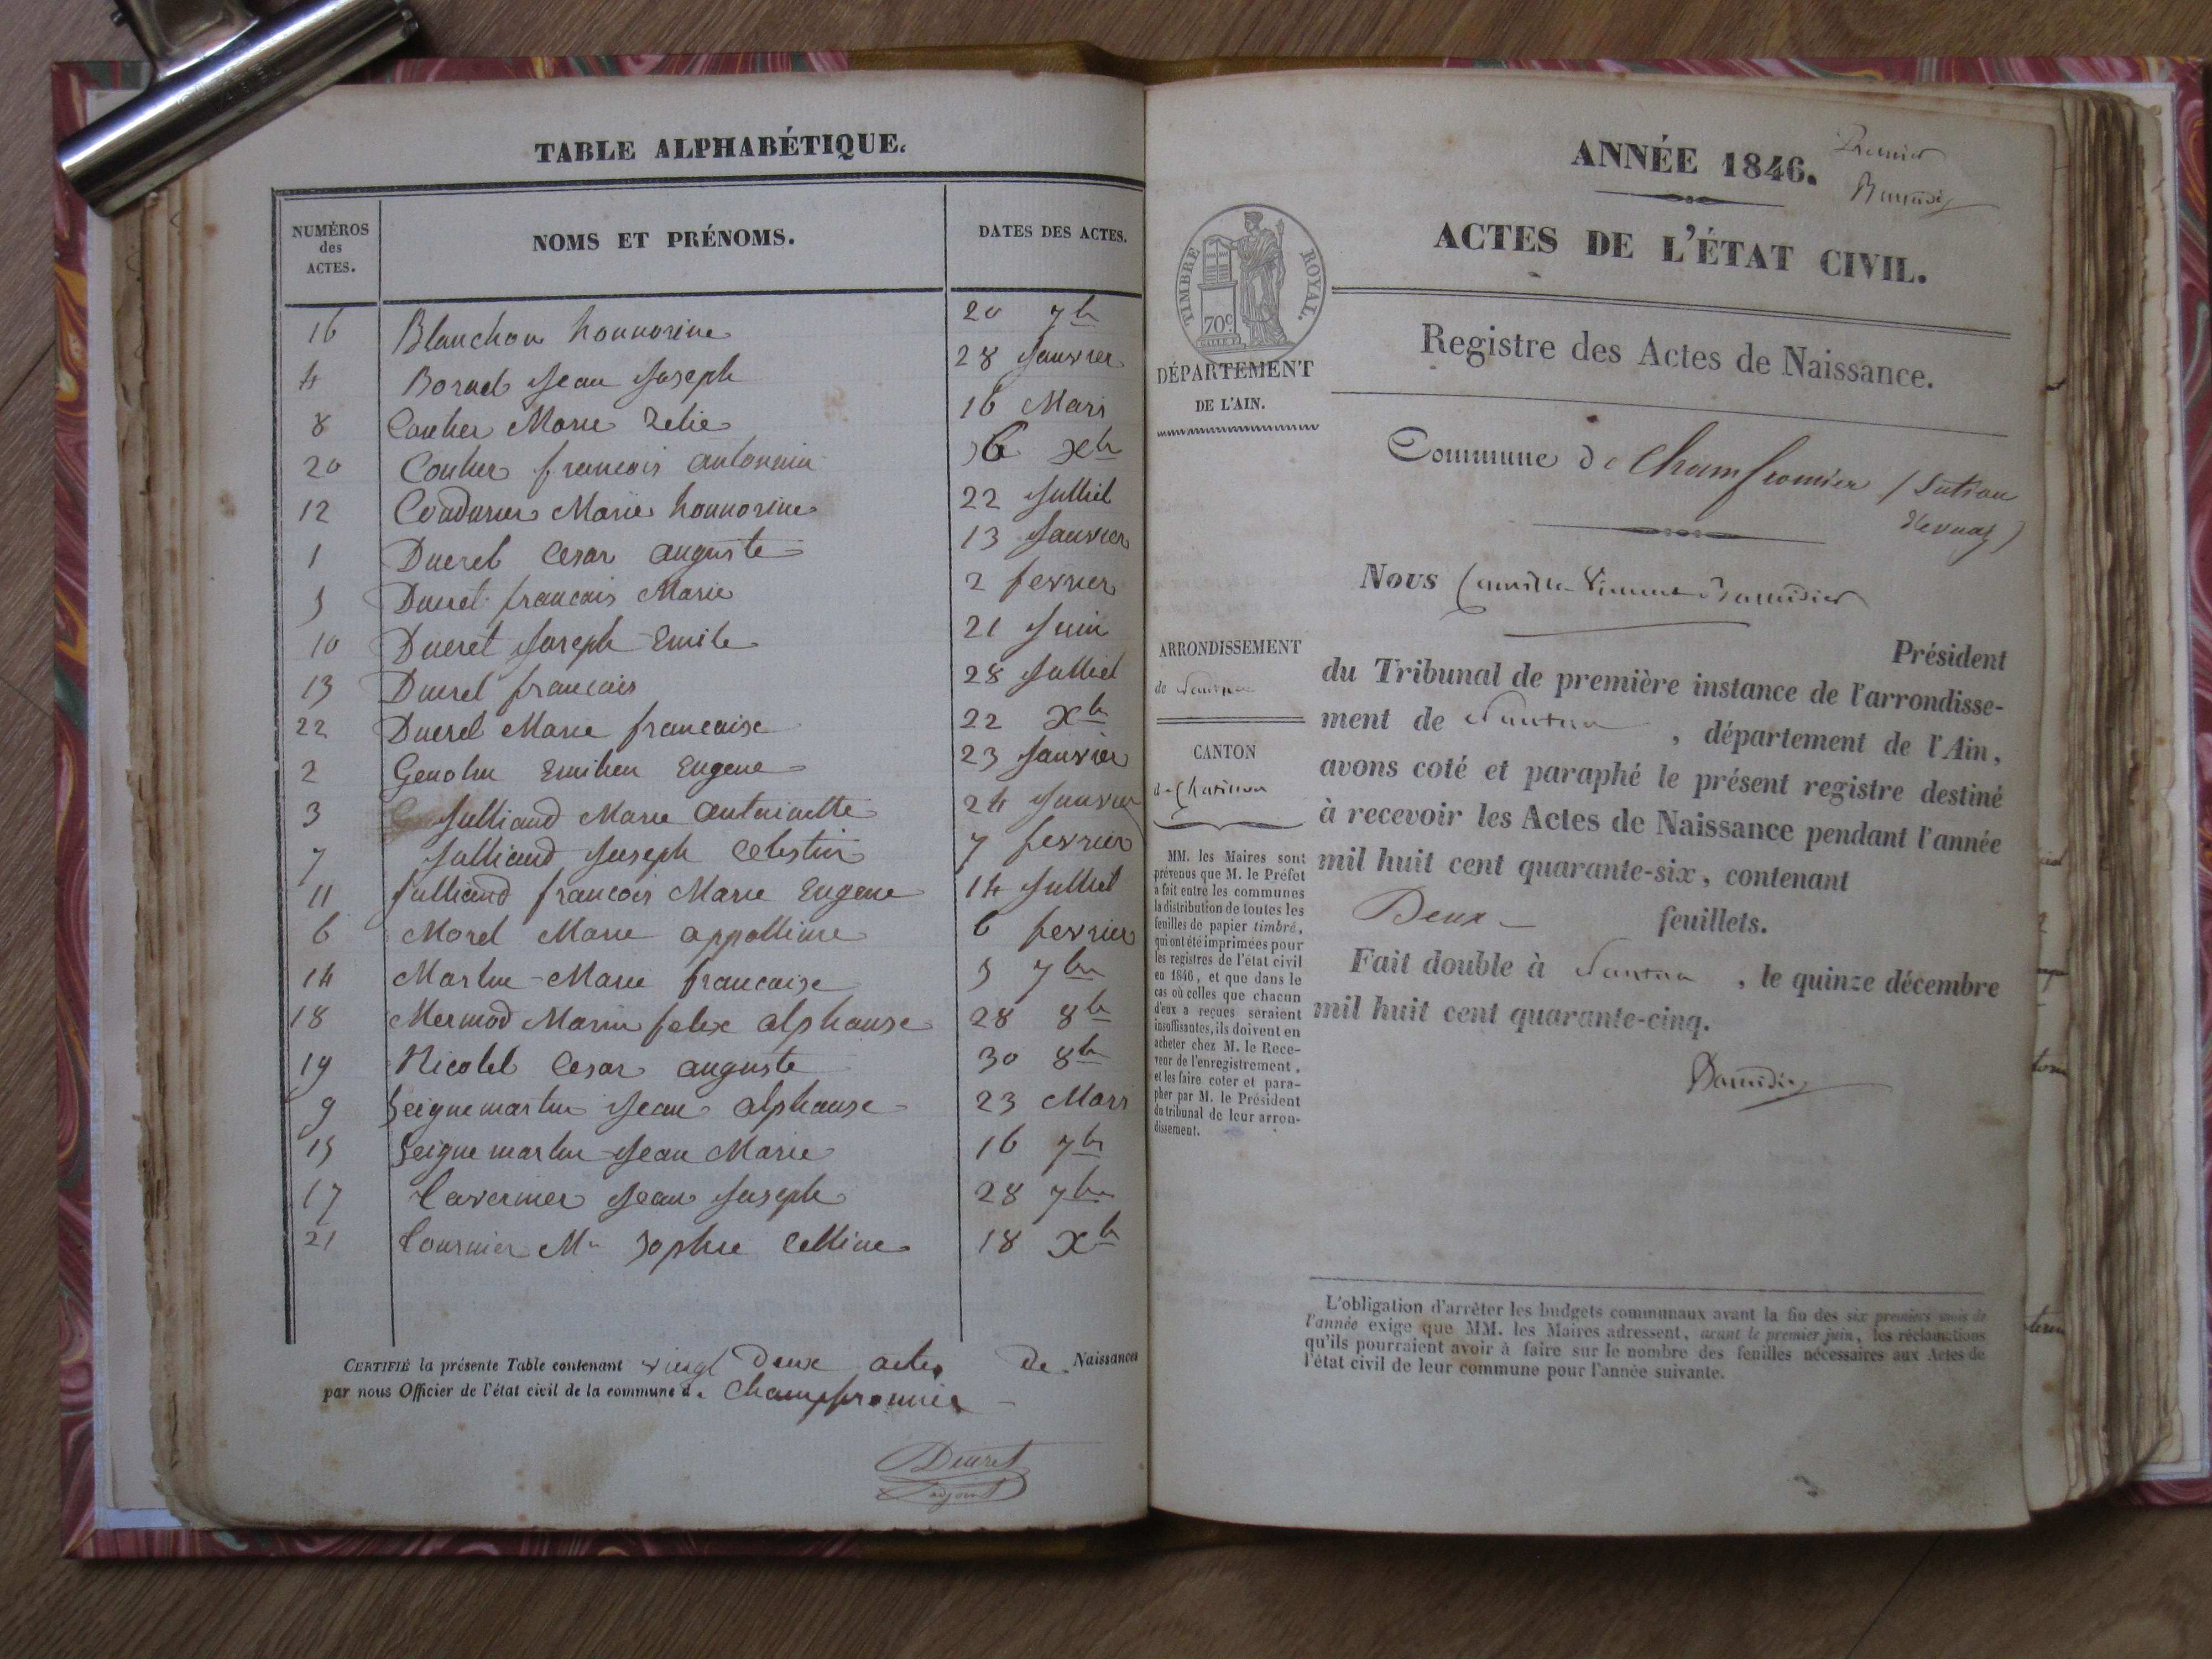 TABLE ALPHABÉTIQUE.
NUMÉROS des ACTES. NOMS ET PRÉNOMS. DATES DES ACTES.
16 Blanchon honnorine 20 7br
4 Bornet Jean Joseph 28 Janvier
8 Coutier Marie Zelie 16 Mars
20 Coutier francois antonnin 6 Xbr
12 Coudurier Marie honnorine 22 Julliet
1 Ducret Cesar auguste 13 Janvier
5 Ducret francais Marie 2 fevrier
10 Ducret Joseph Emile 21 Juin
13 Ducret francais 28 Julliet
22 Ducret Marie francaise 22 Xbr
2 Genolin Emilien Eugene 23 Janvier
3 Julliand Marie antoinette 24 Janvier
7 Julliand Joseph Celestin 7 fevrier
11 Julliand francois Marie Eugene 14 Julliet
6 Morel Marie appolline 6 fevrier
14 Martin Marie francaise 5 7bre
18 Mermod Marin felix alphonse 28 8br
19 Nicolet Cesar auguste 30 8br
9 Seignemartin Jean alphonse 23 Mars
15 Seignemartin Jean Marie 16 7br
17 Tavernier Jean Joseph 28 7bre
21 Tournier Mie Sophie Celline 18 Xbr
CERTIFIÉ la présente Table contenant vingt Deux actes De Naissances
par nous Officier de l'état civil de la commune de Champfromier
Ducret
adjoint
ANNÉE 1846.
Premier
ACTES DE L'ÉTAT CIVIL.
TIMBRE ROYAL.
70c
Registre des Actes de Naissance.
DÉPARTEMENT
DE L'AIN.
Commune de Champfromier
Nous
Président
ARRONDISSEMENT
de Nantua
du Tribunal de première instance de l'arrondisse-
ment de Nantua, département de l'Ain,
CANTON
de Chatillon
avons coté et paraphé le présent registre destiné
à recevoir les Actes de Naissance pendant l'année
mil huit cent quarante-six, contenant
Deux feuillets.
Fait double à Nantua, le quinze décembre
mil huit cent quarante-cinq.
MM. les Maires sont
prévenus que M. le Préfet
a fait entre les communes
la distribution de toutes les
feuilles de papier timbré,
qui ont été imprimées pour
les registres de l'état civil
en 1846, et que dans le
cas où celles que chacun
d'eux a reçues seraient
insuffisantes, ils doivent en
acheter chez M. le Rece-
veur de l'enregistrement,
et les faire coter et para-
pher par M. le Président
du tribunal de leur arron-
dissement.
L'obligation d'arrêter les budgets communaux avant la fin des six premiers mois de
l'année exige que MM. les Maires adressent, avant le premier juin, les réclamations
qu'ils pourraient avoir à faire sur le nombre des feuilles nécessaires aux Actes de
l'état civil de leur commune pour l'année suivante.